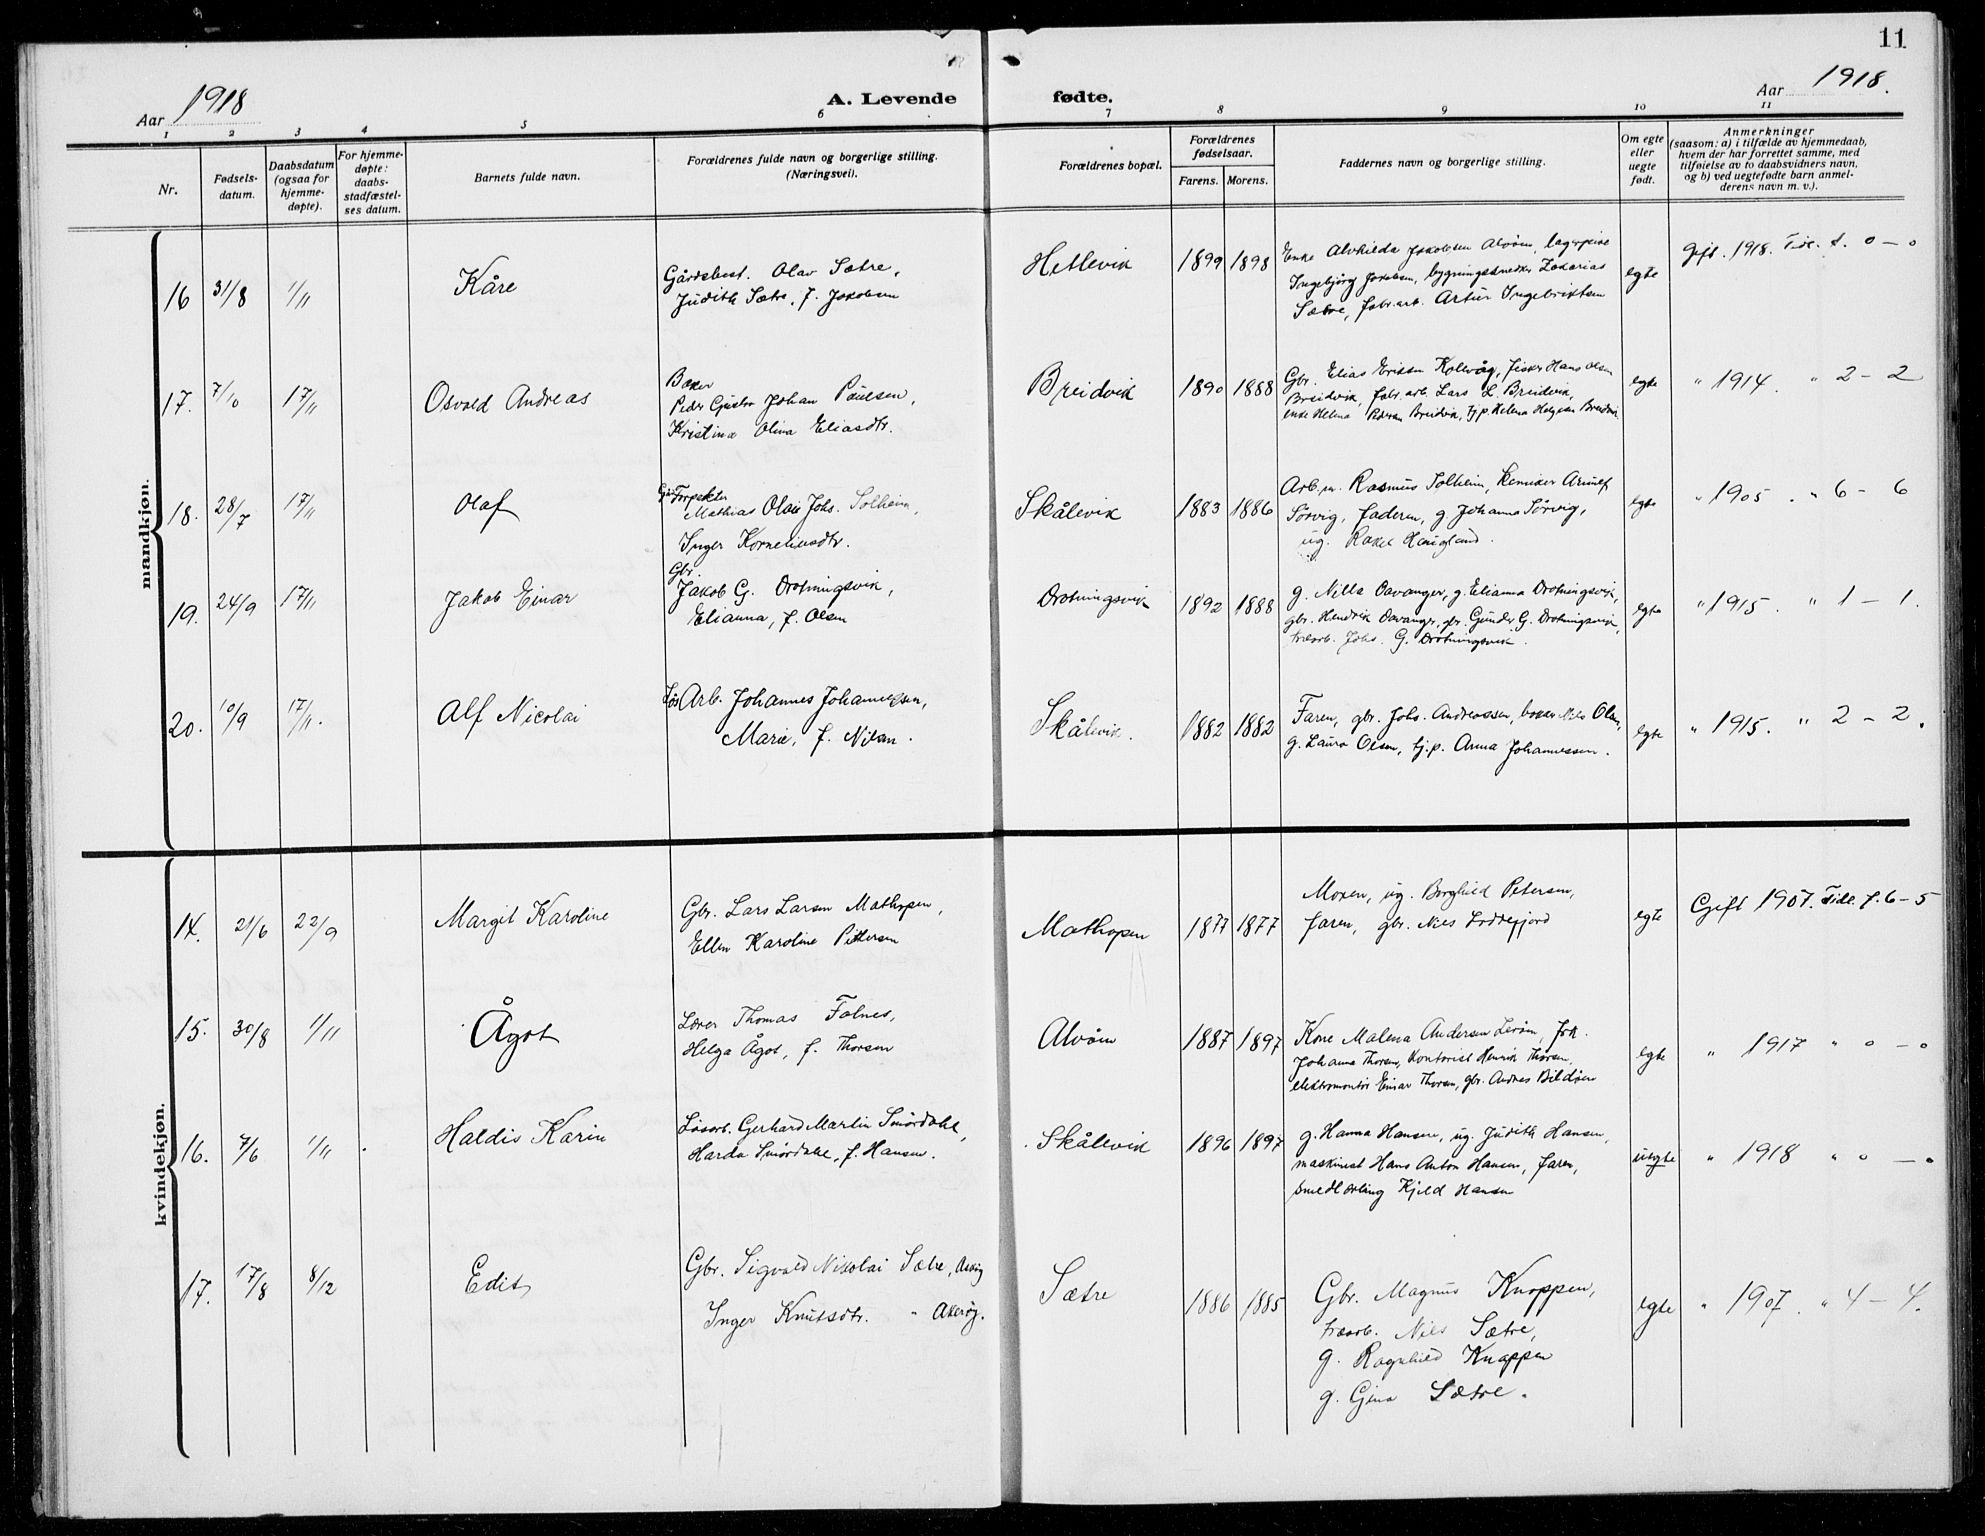 11
Aar 1918
A. Levende fødte.
Aar 1918.
1 2 3 4 5 6 7 8 9 10 11
Nr.
Fødsels-
datum.
Daabsdatum
(ogsaa for
hjemme-
døpte).
For hjemme-
døpte:
daabs-
stadfæstel-
ses datum.
Barnets fulde navn.
Forældrenes fulde navn og borgerlige stilling.
(Næringsvei).
Forældrenes bopæl.
Forældrenes
fødselsaar.
Farens. Morens.
Faddernes navn og borgerlige stilling.
Om egte
eller
uegte
født.
Anmerkninger
(saasom: a) i tilfælde av hjemmedaab,
hvem der har forrettet samme, med
tilføielse av to daabsvidners navn,
og b) ved uegtefødte barn anmel-
derens navn m. v.).
mandkjøn.
16 31/8 1/11 Kåre
Gårdsbest. Olav Sætre,
Judith Sætre, f. Jakobsen
Hetlevik 1899 1898
Enke Alvhilda Jakobsen Alvøen,
Ingebjørg Jakobsen, bygningssnedker Zakarias
Sætre, fabr.arb. Artur Ingebriktsen
egte
Gift. 1918. Tidl. f. 0 - 0
17. 7/10 17/11 Osvald Andreas
Baker
Peder Gustav Johan Paulsen,
Kristina Olina Eliasdtr.
Breidvik 1890 1888
Gbr. Elias Ericsen Kolevåg, fisker Hans Olsen
Breidvik, fabr.arb. Lars L. Breidvik,
enke Helena Pedersen Breidvik, tj.p. Helena Helgesen Breidvik
egte
" 1914. " 2 - 2
18. 28/7 17/11 Olaf
Mathias Olai Johs. Solheim,
Inger Korneliusdtr.
Skålevik 1883 1886
Arb. m. Rasmus Solheim, kemiker Arnulf
Sørvig, faderen, g. Johanna Sørvig,
ug. Rakel Haugland.
egte
" 1905. " 6 - 6
19. 24/9 17/11 Jakob Einar
Gbr.
Jakob G. Drotningsvik,
Elianna, f. Olsen
Drotningsvik 1892 1888
g. Nilla Davanger, g. Elianna Drotningsvik,
gbr. Hendrik Davanger, gbr. Gunder G. Drotningsvik,
træarb. Johs. G. Drotningsvik.
egte
" 1915. " 1 - 1.
20. 10/9 17/11. Alf Nicolai
Løs Arb. Johannes Johannessen,
Marie, f. Nilsen.
Skålevik. 1882 1882
Faren, gbr. Johs. Andreassen, baker Nils Olsen,
g. Laura Olsen, tj.p. Anna Johannessen.
egte
" 1915. " 2 - 2.
kvindekjøn.
14. 21/6 22/9 Margit Karoline
Gbr. Lars Larsen Mathopen,
Ellen Karoline Pettersen
Mathopen 1877 1877
Moren, ug. Borghild Petersen,
faren, gbr. Nils Loddefjord
egte
Gift 1907. Tidl. f. 6 - 5
15. 30/8 1/11 Ågot
Lærer Thomas Falnes,
Helga Ågot, f. Thorsen
Alvøen 1887 1897
Kone Malena Andersen Lerøen, frk.
Johanna Thorsen, kontorist Henrik Thorsen,
elektromontør Einar Thorsen, gbr. Andreas Bildøen
egte
" 1917 " 0 - 0
16. 7/6 1/11 Haldis Karin
Løsarb. Gerhard Martin Smørdahl,
Harda Smørdahl, f. Hansen.
Skålevik 1896 1897
g. Hanna Hansen, ug. Judith Hansen,
maskinist Hans Anton Hansen, faren,
smedlærling Kjeld Hansen
uegte
" 1918 " 0 - 0
17. 17/8 8/12 Edit
Gbr. Sigvald Nikolai Sætre, Askøy
Inger Knutsdtr. " Askøy.
Sætre 1886 1885
Gbr. Magnus Knappen,
træarb. Nils Sætre,
g. Ragnhild Knappen
g. Gjena Sætre.
egte
" 1907. " 4 - 4.